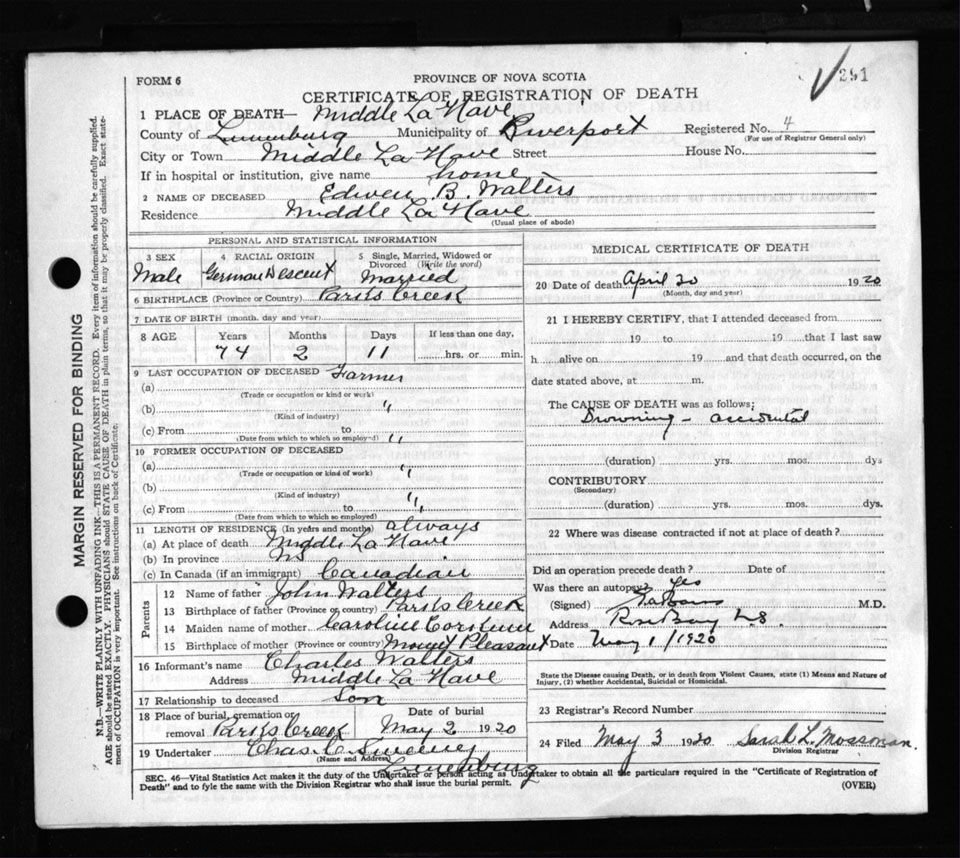 251
FORM 6
PROVINCE OF NOVA SCOTIA
CERTIFICATE OF REGISTRATION OF DEATH
1 PLACE OF DEATH— Middle La Have
County of Lunenburg Municipality of Riverport Registered No. 4
(For use of Registrar General only)
City or Town Middle La Have Street House No.
If in hospital or institution, give name home
2 NAME OF DECEASED Edwen B. Walters
Residence Middle La Have
(Usual place of abode)
PERSONAL AND STATISTICAL INFORMATION
3 SEX 4 RACIAL ORIGIN 5 Single, Married, Widowed or
Divorced (Write the word)
Male German Descent Married
6 BIRTHPLACE (Province or Country) Parks Creek
7 DATE OF BIRTH (month, day and year)
8 AGE Years Months Days If less than one day,
74 2 11 hrs. or min.
9 LAST OCCUPATION OF DECEASED Farmer
(a)
(Trade or occupation or kind or work)
(b) "
(Kind of industry)
(c) From to "
(Date from which to which so employed)
10 FORMER OCCUPATION OF DECEASED
(a) "
(Trade or occupation or kind of work)
(b) "
(Kind of industry)
(c) From to "
(Date from which to which so employed)
11 LENGTH OF RESIDENCE (In years and months) always
(a) At place of death Middle La Have
(b) In province NS
(c) In Canada (if an immigrant) Canadian
Parents
12 Name of father John Walters
13 Birthplace of father (Province or country) Parks Creek
14 Maiden name of mother Caroline
15 Birthplace of mother (Province or country) Mount Pleasant
16 Informant's name Charles Walters
Address Middle La Have
17 Relationship to deceased Son
18 Place of burial, cremation or removal Parks Creek Date of burial May 2 1920
19 Undertaker Chas. C. Sweeney
(Name and Address)
Lunenburg
MEDICAL CERTIFICATE OF DEATH
20 Date of death April 30 1920
(Month, day and year)
21 I HEREBY CERTIFY, that I attended deceased from
19 to 19 that I last saw
h alive on 19 and that death occurred, on the
date stated above, at m.
The CAUSE OF DEATH was as follows;
Drowning - accidental
(duration) yrs. mos. dys
CONTRIBUTORY
(Secondary)
(duration) yrs. mos. dys.
22 Where was disease contracted if not at place of death?
Did an operation precede death? Date of
Was there an autopsy? Yes
(Signed) M.D.
Address Rose Bay N.S.
Date May 1/1920
State the Disease causing Death, or in death from Violent Causes, state (1) Means and Nature of
Injury, (2) whether Accidental, Suicidal or Homicidal.
23 Registrar's Record Number
24 Filed May 3 1920 Sarah L. Mossman
Division Registrar
SEC. 46—Vital Statistics Act makes it the duty of the Undertaker or person acting as Undertaker to obtain all the particulars required in the "Certificate of Registration of
Death" and to fyle the same with the Division Registrar who shall issue the burial permit. (OVER)
MARGIN RESERVED FOR BINDING
N.B.—WRITE PLAINLY WITH UNFADING INK—THIS IS A PERMANENT RECORD. Every item of information should be carefully supplied.
AGE should be stated EXACTLY. PHYSICIANS should STATE CAUSE OF DEATH in plain terms, so that it may be properly classified. Exact state-
ment of OCCUPATION is very important. See instructions on back of Certificate.